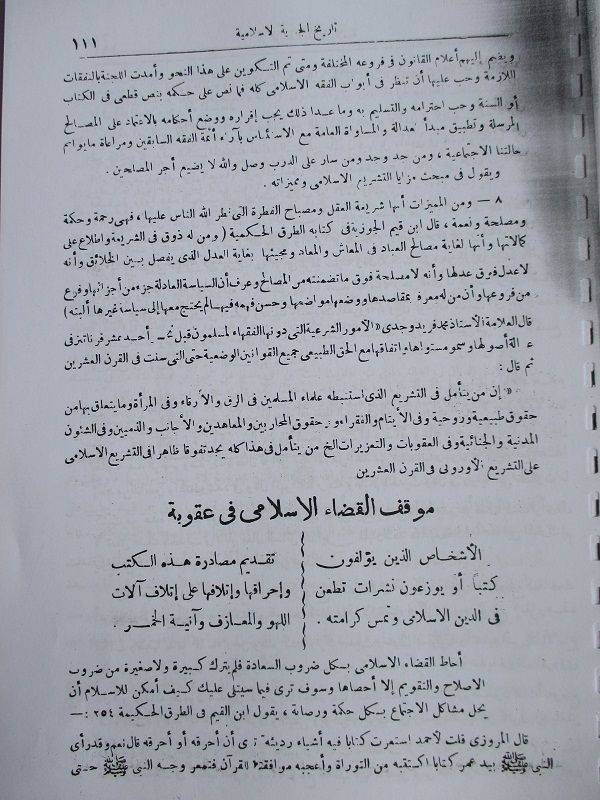 تاريخ الجـ ية الاسلامية
١١١
ويضم إليهم أعلام القانون في فروعه المختلفة ومتى تم التكوين على هذا النحو وأمدت اللجنة بالنفقات
اللازمة وجب عليها أن تنظر في أبواب الفقه الاسلامى كله فما نص على حكمه بنص قطعى فى الكتاب
أو السنة وجب احترامه والتسليم به وما عدا ذلك يجب إقراره ووضع أحكامه بالاعتماد على المصالح
المرسلة وتطبيق مبدأ العدالة والمساواة العامة مع الاستئناس بآراء أئمة الفقه السابقين ومراعاة ما يوائم
حالتنا الاجتماعية ، ومن جد وجد ومن سار على الدرب وصل والله لا يضيع أجر المصلحين .
ويقول فى مبحث مزايا التشريع الاسلامى ومميزاته .
٨ — ومن المميزات أنها شريعة العقل ومصباح الفطرة التى فطر الله الناس عليها ، فهى رحمة وحكمة
ومصلحة ونعمة ، قال ابن قيم الجوزية فى كتابه الطرق الحكمية ( ومن له ذوق فى الشريعة واطلاع على
كمالاتها وأنها لغاية مصالح العباد فى المعاش والمعاد ومجيئها بغاية العدل الذى يفصل بين الخلائق وأنه
لا عدل فوق عدلها وأنه لا مصلحة فوق ما تضمنته من المصالح وعرف أن السياسة العادلة جزء من أجزائها وفرع
من فروعها وأن من له معرفة بمقاصدها ووضعها مواضعها وحسن فهمه فيها لم يحتج معها إلى سياسة غيرها ألبتة )
قال العلامة الأستاذ محمد فريد وجدى « الأمور الشرعية التى دونها الفقهاء المسلمون قبل نحو أحد عشر قرنا تمتاز فى
عدالة أصولها وسمو مستواها واتفاقها مع الحق الطبيعى جميع القوانين الوضعية حتى التى سنت فى القرن العشرين
ثم قال :
« إن من يتأمل فى التشريع الذى استنبطه علماء المسلمين فى الرق والأرقاء وفى المرأة وما يتعلق بها من
حقوق طبيعية وروحية وفى الأيتام والفقراء وفى حقوق المحاربين والمعاهدين والأجانب والذميين وفى الشئون
المدنية والجنائية وفى العقوبات والتعزيرات الخ من يتأمل فى هذا كله يجد تفوقا ظاهرا فى التشريع الاسلامى
على التشريع الأوروبى فى القرن العشرين
موقف القضاء الاسلامى فى عقوبة
الأشخاص الذين يؤلفون
كتباً أو يوزعون نشرات تطعن
فى الدين الاسلامى وتمس كرامته .
تقديم مصادرة هذه الكتب
وإحراقها وإتلافها على إتلاف آلات
اللهو والمعازف وآنية الخمر .
أحاط القضاء الاسلامى بكل ضروب السعادة فلم يترك كبيرة ولا صغيرة من ضروب
الاصلاح والتقويم إلا أحصاها وسوف ترى فيما سيتلى عليك كيف أمكن للاسلام أن
يحل مشاكل الاجتماع بكل حكمة ورصانة ، يقول ابن القيم فى الطرق الحكيمة ٢٥٤ : —
قال المروزى قلت لأحمد استعرت كتابا فيه أشياء رديئة ترى أن أحرقه أو أخرقه قال نعم وقد رأى
النبى ﷺ بيد عمر كتابا اكتتبه من التوراة وأعجبه موافقته للقرآن فتمعر وجه النبى ﷺ حتى